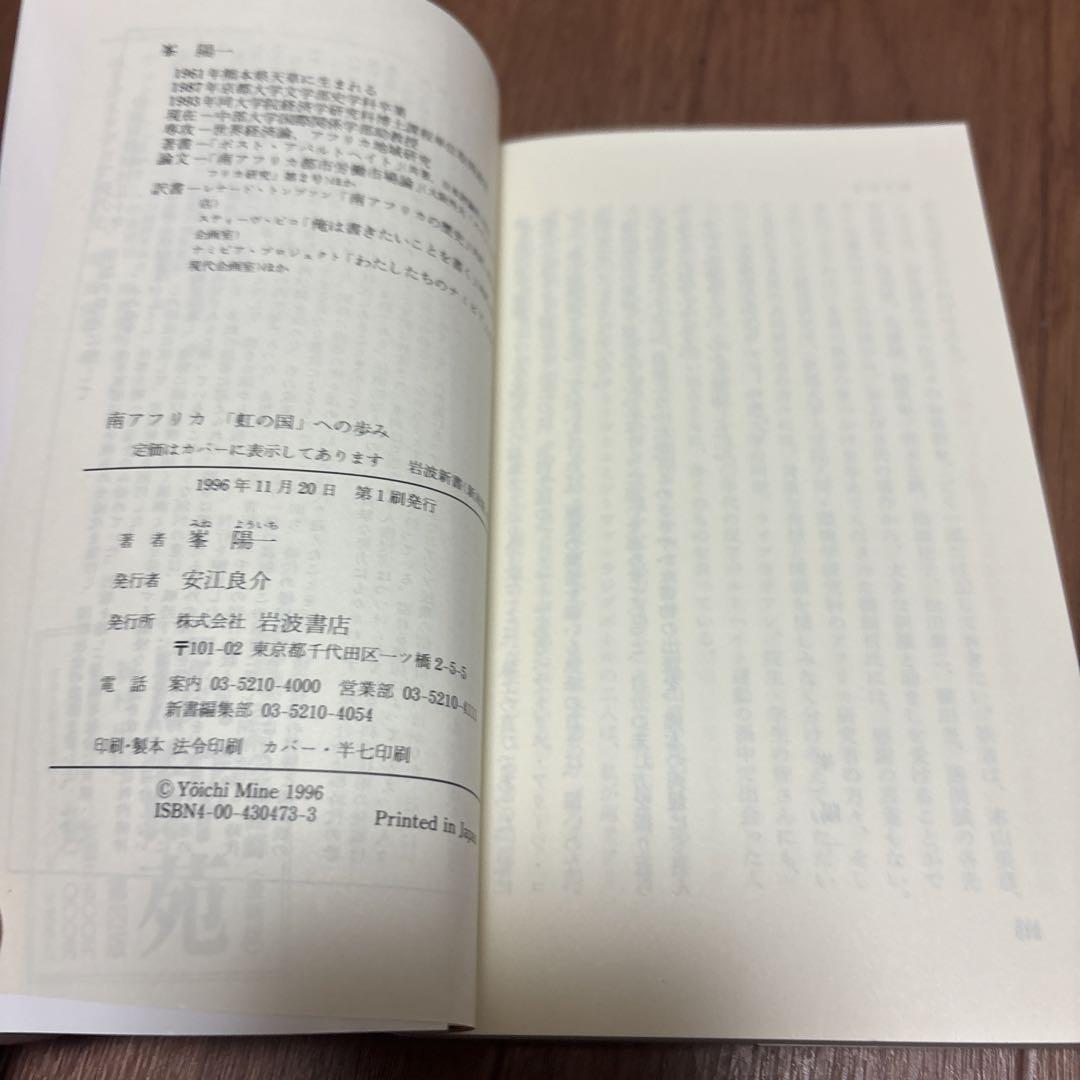 峯 陽一
1961年熊本県天草に生まれる
1987年京都大学文学部史学科卒業
1993年同大学院経済学研究科博士課程単位
現在－中部大学国際関係学部助教授
専攻－世界経済論，アフリカ地域研究
著書－「ポスト・アパルトヘイト」(共著，日本
論文－「南アフリカ都市労働市場論」
フリカ研究」第2号)ほか
訳書－レナード・トンプソン「南アフリカの歴史」
店)
スティーヴ・ビコ「俺は書きたいことを書く」
企画室)
ナミビア・プロジェクト「わたしたちのナミビア
現代企画室)ほか
南アフリカ 「虹の国」への歩み
定価はカバーに表示してあります 岩波新書
1996年11月20日 第1刷発行
みね よういち
著 者 峯 陽一
発行者 安江良介
発行所 株式会社 岩波書店
〒101-02 東京都千代田区一ツ橋2-5-5
電 話 案内 03-5210-4000 営業部 03-5210-4111
新書編集部 03-5210-4054
印刷・製本 法令印刷 カバー・半七印刷
© Yôichi Mine 1996
ISBN4-00-430473-3 Printed in Japan